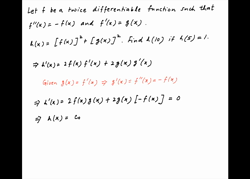 Let f be a twice differentiable function such that
f''(x) = -f(x) and f'(x) = g(x).
h(x) = [f(x)]² + [g(x)]². Find h(10) if h(5) = 1.
⇒ h'(x) = 2f(x) f'(x) + 2g(x) g'(x)
Given g(x) = f'(x) ⇒ g'(x) = f''(x) = -f(x)
⇒ h'(x) = 2f(x) g(x) + 2g(x) [-f(x)] = 0
⇒ h(x) = Co